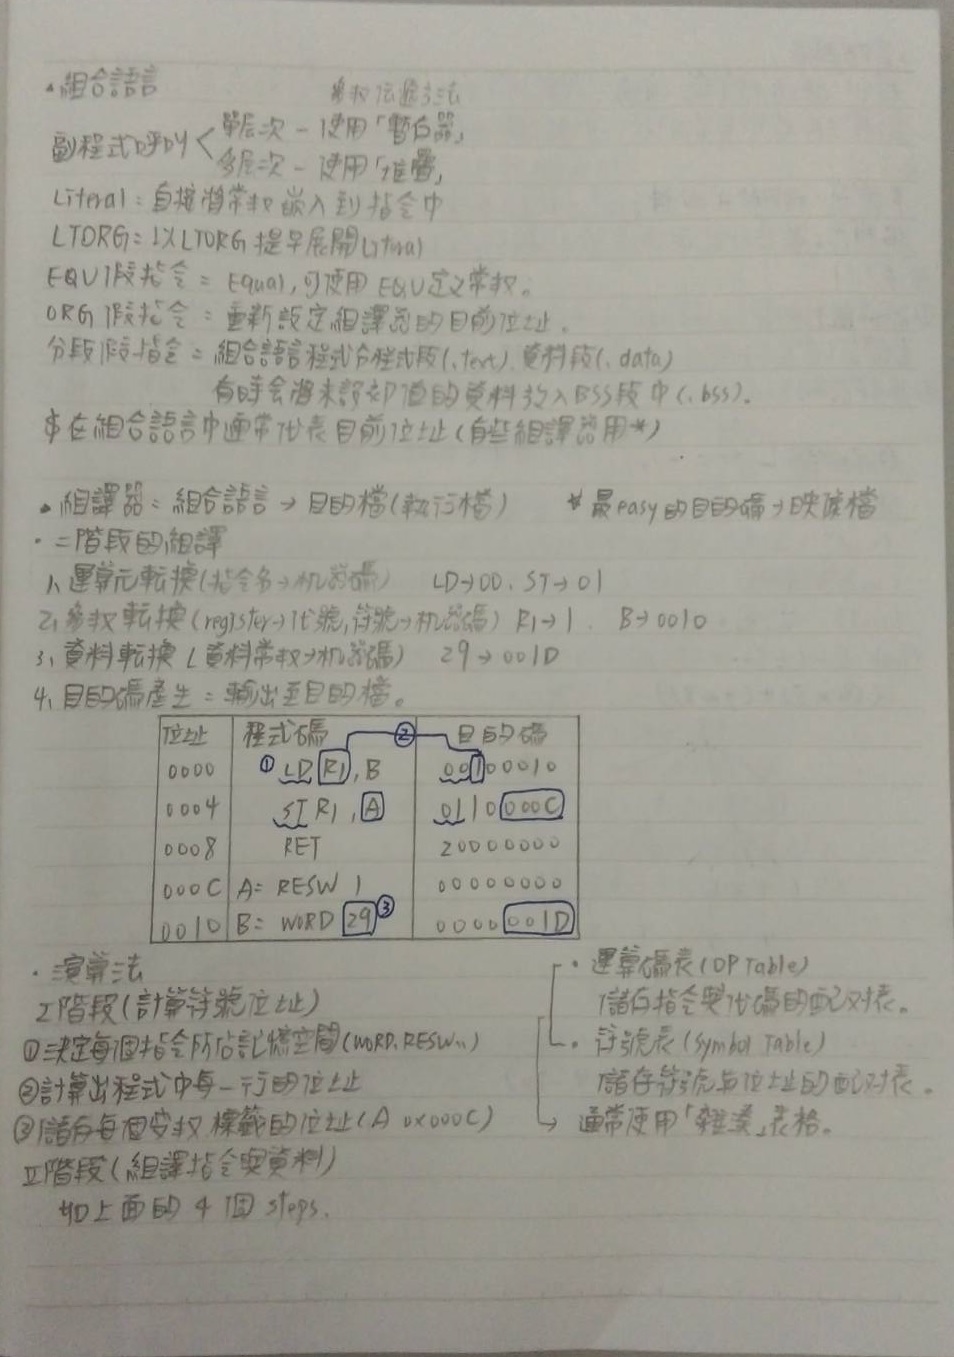 組合語言
參数伝遞方法
副程式呼叫 < 單层次 - 使用「暫存器」
多层次 - 使用「堆疊」
Literal: 直接將常数嵌入到指令中
LTORG: 以LTORG 提早展開Literal
EQU假指令: Equal, 可使用EQU定义常数。
ORG假指令: 重新設定組譯器的目前位址。
分段假指令: 組合語言程式分程式段(.text)、資料段(.data)
有時会將未設初值的資料放入BSS段中(.bss)。
$在組合語言中通常代表目前位址(有些組譯器用*)
組譯器: 組合語言→目的檔(執行檔) *最easy的目的碼→映像檔
·二階段的組譯
1、運算元転換(指令名→机器碼) LD→00、ST→01
2、參数転換(register→代號,符號→机器碼) R1→1、B→0010
3、資料転換(資料常数→机器碼) 29→001D
4、目的碼產生: 輸出至目的檔。
位址 程式碼 ② 目的碼
0000 ① LD R1, B 00100010
0004 ST R1, A 0110000C
0008 RET 20000000
000C A: RESW 1 00000000
0010 B: WORD 29 ③ 0000001D
·演算法
I階段(計算符號位址)
①決定每個指令所佔記憶空間(WORD、RESW..)
②計算出程式中每一行的位址
③儲存每個变数、標籤的位址(A 0x000C)
II階段(組譯指令與資料)
如上面的4個steps.
·運算碼表(OP Table)
儲存指令與代碼的配对表。
·符號表(Symbol Table)
儲存符號與位址的配对表。
→通常使用「雜湊」表格。